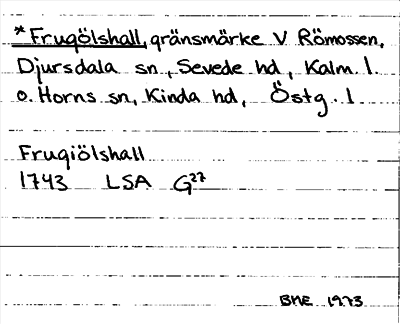 *Frugölshall, gränsmärke V Römossen,
Djursdala sn, Sevede hd, Kalm. l.
o. Horns sn, Kinda hd, Östg. l
Frugiölshall
1743 LSA G27
BME 1973